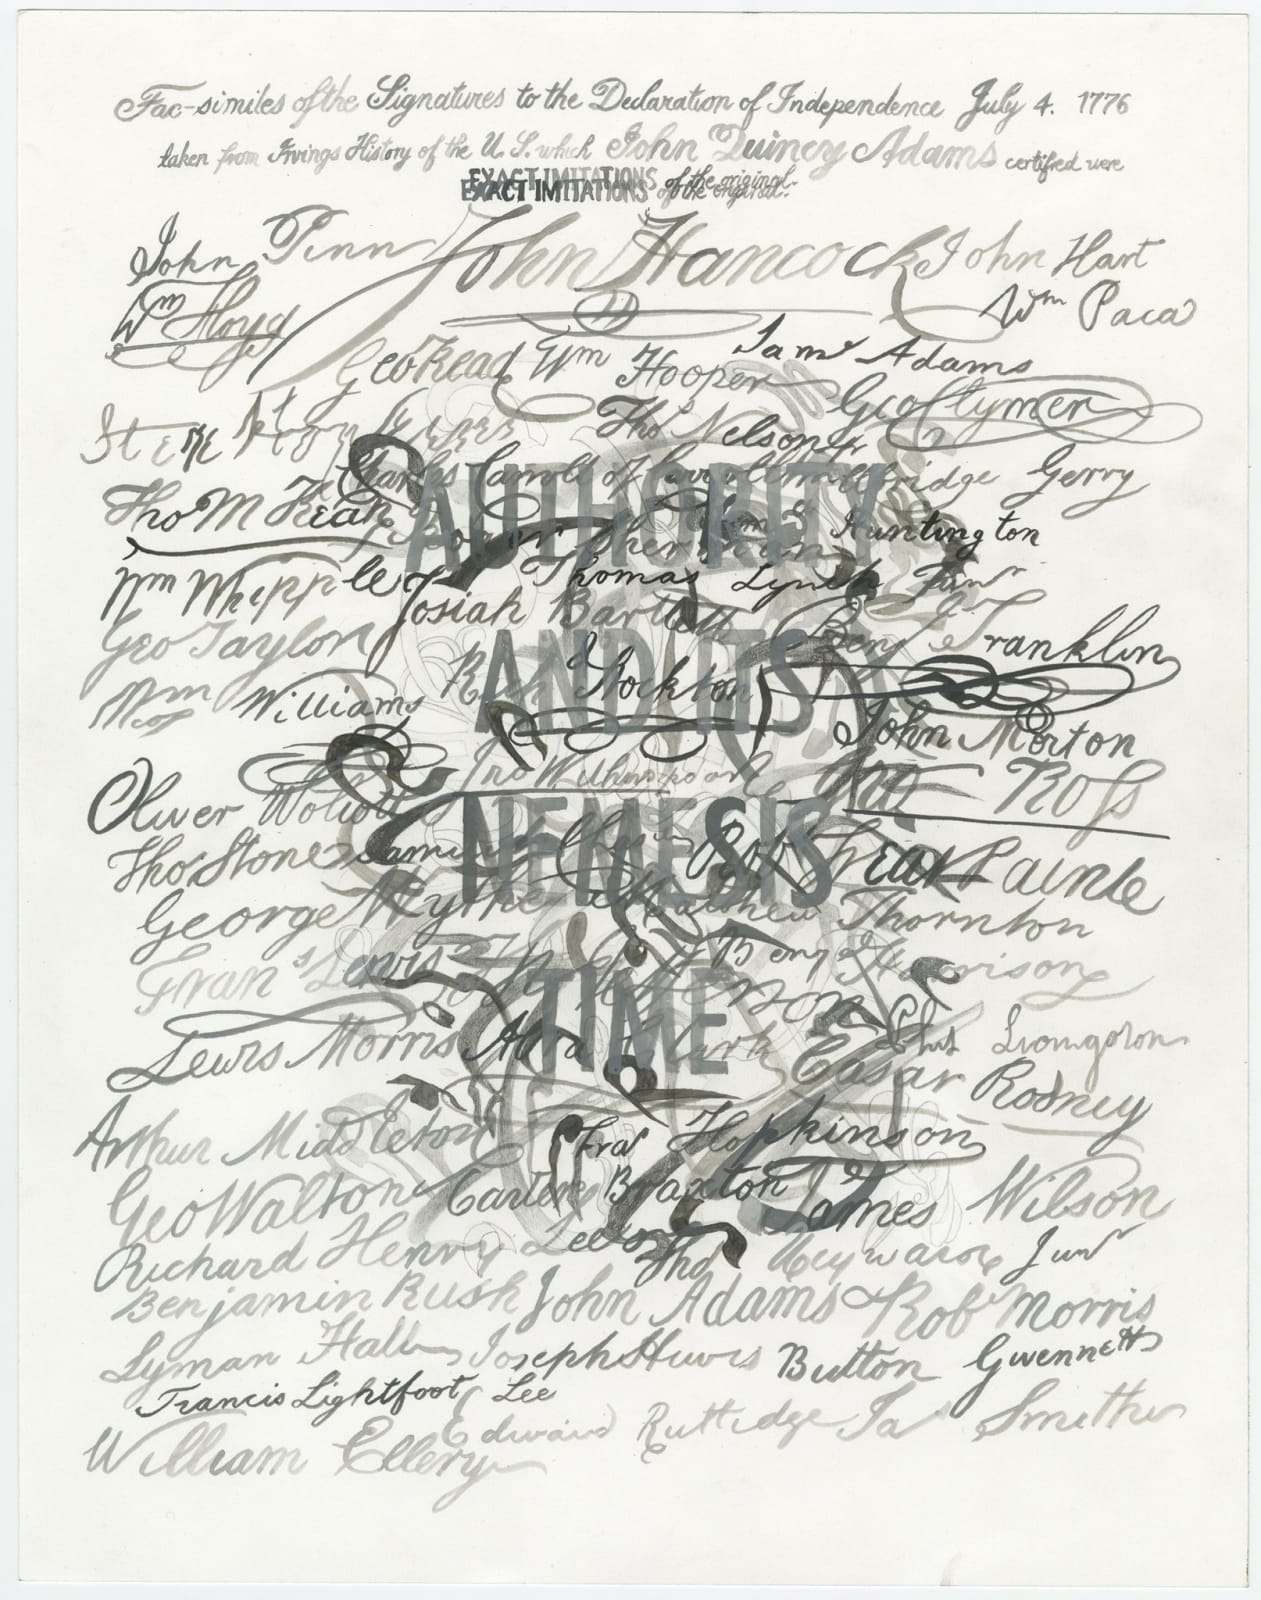 Fac-similes of the Signatures to the Declaration of Independence July 4. 1776
taken from Irvings History of the U. S. which John Quincy Adams certified were
EXACT IMITATIONS of the original.
EXACT IMITATIONS of the original.
John Penn John Hancock John Hart
Wm Floyd Wm Paca
Geo Read Wm Hooper Saml Adams
Geo Clymer
Step Hopkins Tho Nelson jr
Charles Carroll of Carrollton Elbridge Gerry
AUTHORITY
Tho M Kean Roger Sherman Saml Huntington
Wm Whipple Thomas Lynch Junr
Josiah Bartlett
Geo Taylor Benj Franklin
AND ITS
Wm Williams Richd Stockton
John Morton
Oliver Wolcott Jno Witherspoon Geo Ross
NEMESIS
Tho Stone Samuel Chase Robt Treat Paine
George Wythe Matthew Thornton
Frans Lewis Th Jefferson Benj Harrison
TIME
Lewis Morris Abra Clark Phil Livingston
Caesar Rodney
Arthur Middleton Fras Hopkinson
Geo Walton Carter Braxton James Wilson
Richard Henry Lee Thos Heyward Junr
Benjamin Rush John Adams Rob Morris
Lyman Hall Joseph Hewes Button Gwennett
Francis Lightfoot Lee
William Ellery Edward Ruttidge Jas Smith